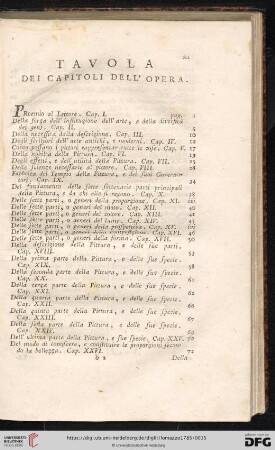 TAVOLA
DEI CAPITOLI DELL'OPERA.
Proemio al Lettore. Cap. I. pag. 1
Della forza dell'instituzione dell'arte, e della diversità
dei genj. Cap. II. 5
Della necessità della descrizione. Cap. III. 10
Degli scrittori dell'arte antichi, e moderni. Cap. IV. 12
Come possano i pittori rappresentar tutte le cose. Cap. V. 17
Della nobiltà della Pittura. Cap. VI. 19
Degli effetti, e dell'utilità della Pittura. Cap. VII. 25
Delle scienze necessarie al pittore. Cap. VIII. 28
Fabbrica del Tempio della Pittura, e dei suoi Governa-
tori. Cap. IX. 34
Del fondamento delle sette
della Pittura, e da chi ella è retta. Cap. X.
Delle sette parti, o generi della proporzione. Cap. XI.
Delle sette parti, o generi del moto. Cap. XII.
Delle sette parti, o generi del colore. Cap. XIII.
Delle sette parti, o generi del lume. Cap. XIV.
Delle sette parti, o generi della prospettiva. Cap. XV.
Delle sette parti, o generi della Cap. XVI.
Delle sette parti, o generi della forma. Cap. XVII. 50
Della descrizione della Pittura, e delle sue parti.
Cap. XVIII.
Della prima parte della Pittura, e delle sue spezie.
Cap. XIX.
Della seconda parte della Pittura, e delle sue spezie.
Cap. XX.
Della terza parte della Pittura, e delle sue spezie.
Cap. XXI.
Della quarta parte della Pittura, e delle sue spezie.
Cap. XXII. 66
Della quinta parte della Pittura, e delle sue spezie.
Cap. XXIII. 67
Della sesta parte della Pittura, e delle sue spezie.
Cap. XXIV.
Dell'ultima parte della Pittura, e sue spezie. Cap. XXV.
Del modo di conoscere, e constituire le proporzioni
do la bellezza. Cap. XXVI. 72
Della
http://digi.ub.uni-heidelberg.de/diglit/lomazzo1785/0035
© Universitätsbibliothek Heidelberg
UNIVERSITÄTS-
BIBLIOTHEK
HEIDELBERG
gefördert durch die
DFG